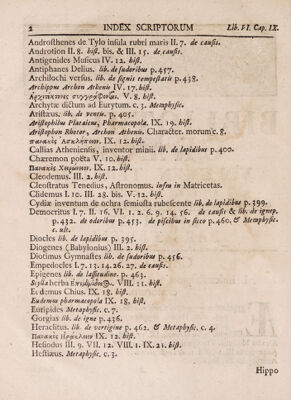 2 INDEX SCRIPTORUM Lib. VI. Cap. IX.
Androsthenes de Tylo insula rubri maris II. 7. de causis.
Androtion II. 8. hist. bis, & III. 15. de causis.
Antigenides Musicus IV. 12. hist.
Antiphanes Delius. lib. de sudoribus p. 457.
Archilochi versus. lib. de signis tempestatū p. 438.
Archippus Archon Athenis IV. 17. hist.
V. 8. hist.
Archytæ dictum ad Eurytum. c. 3. Metaphysic.
Aristæus, lib. de ventis. p. 405.
Aristophilus Plataicus, Pharmacopola. IX. 19. hist.
Aristophon Rhetor, Archon Athenis. Character. morum c. 8.
IX. 12. hist.
Callias Atheniensis, inventor minii. lib. de lapidibus p. 400.
Chæremon poëta V. 10. hist.
IX. 12. hist.
Cleodemus. III. 2. hist.
Cleostratus Tenedius, Astronomus. infra in Matricetas.
Clidemus I. 10. III. 28. bis. V. 12. hist.
Cydiæ inventum de ochra semiusta rubescente lib. de lapidibus p. 399.
Democritus I. 7. II. 16. VI. 1. 2. 6. 9. 14. 56. de causis & lib. de ignep.
p. 432. de odoribus p. 453. de piscibus in sicco p. 460. & Metaphysic.
c. ult.
Diocles lib. de lapidibus p. 395.
Diogenes (Babylonius) III. 2. hist.
Diotimus Gymnastes lib. de sudoribus p. 456.
Empedocles I. 7. 13. 14. 26. 27. de causis
Epigenes lib. de lassitudine. p. 463.
herba VIII. 11. hist.
Eudemus Chius. IX. 18. hist.
Eudemus pharmacopola IX. 18. hist.
Euripides Metaphysic. c. 7.
Gorgias lib. de igne p. 436.
Heraclitus. lib. de vertigine p. 462. & Metaphysic. c. 4.
IX. 13. hist.
Hesiodus III. 9. VII. 12. VIII. 1. IX. 21. hist.
Hestiæus. Metaphysic. c. 3.
Hippo